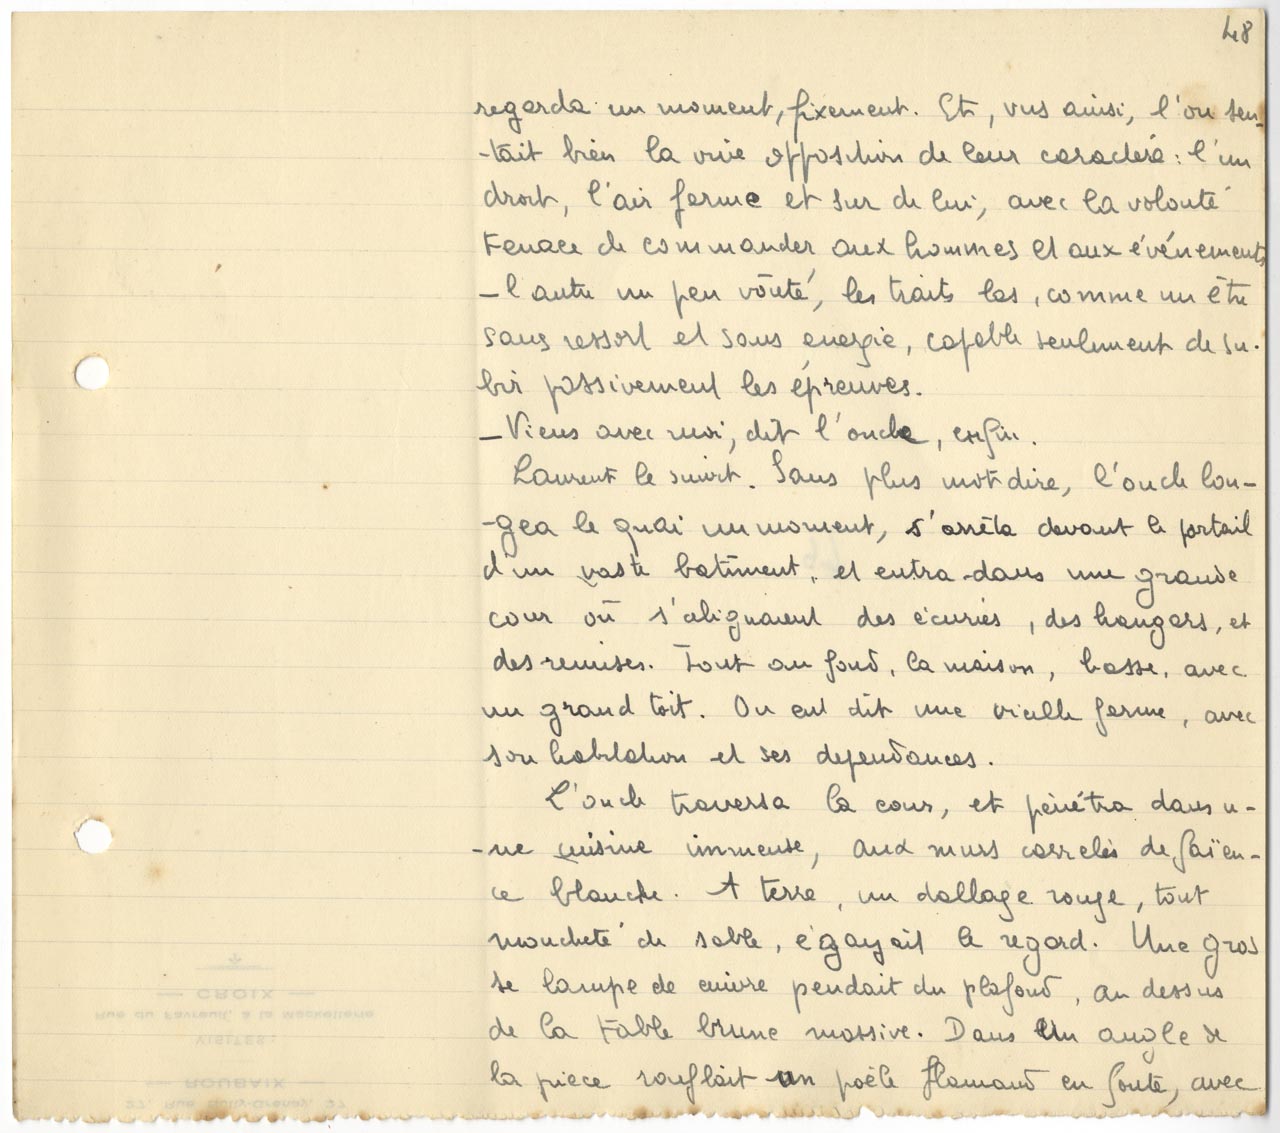 48
regarda un moment, fixement. Et, vus ainsi, l'on sen-
-tait bien la vive opposition de leur caractère : l'un
droit, l'air ferme et sur de lui, avec la volonté
tenace de commander aux hommes et aux événements
- l'autre un peu voûté, les traits las, comme un être
sans ressort et sans energie, capable seulement de su-
bir passivement les épreuves.
- Viens avec moi, dit l'oncle, enfin.
Laurent le suivit. Sans plus mot dire, l'oncle lon-
-gea le quai un moment, s'arrêta devant le portail
d'un vaste batiment, et entra dans une grande
cour où s'alignaient des écuries, des hangars, et
des remises. Tout au fond, la maison, basse, avec
un grand toit. On eut dit une vieille ferme, avec
son habitation et ses dependances.
L'oncle traversa la cour, et pénétra dans u-
-ne cuisine immense, aux murs carrelés de faïen-
ce blanche. A terre, un dallage rouge, tout
moucheté de sable, égayait le regard. Une gros
se lampe de cuivre pendait du plafond, au dessus
de la table brune massive. Dans un angle de
la pièce ronflait un poêle flamand en fonte, avec
CROIX
Rue du Favreuil, à la Mackellerie
VISITES:
ROUBAIX
27, Rue Bully-Grenay, 27